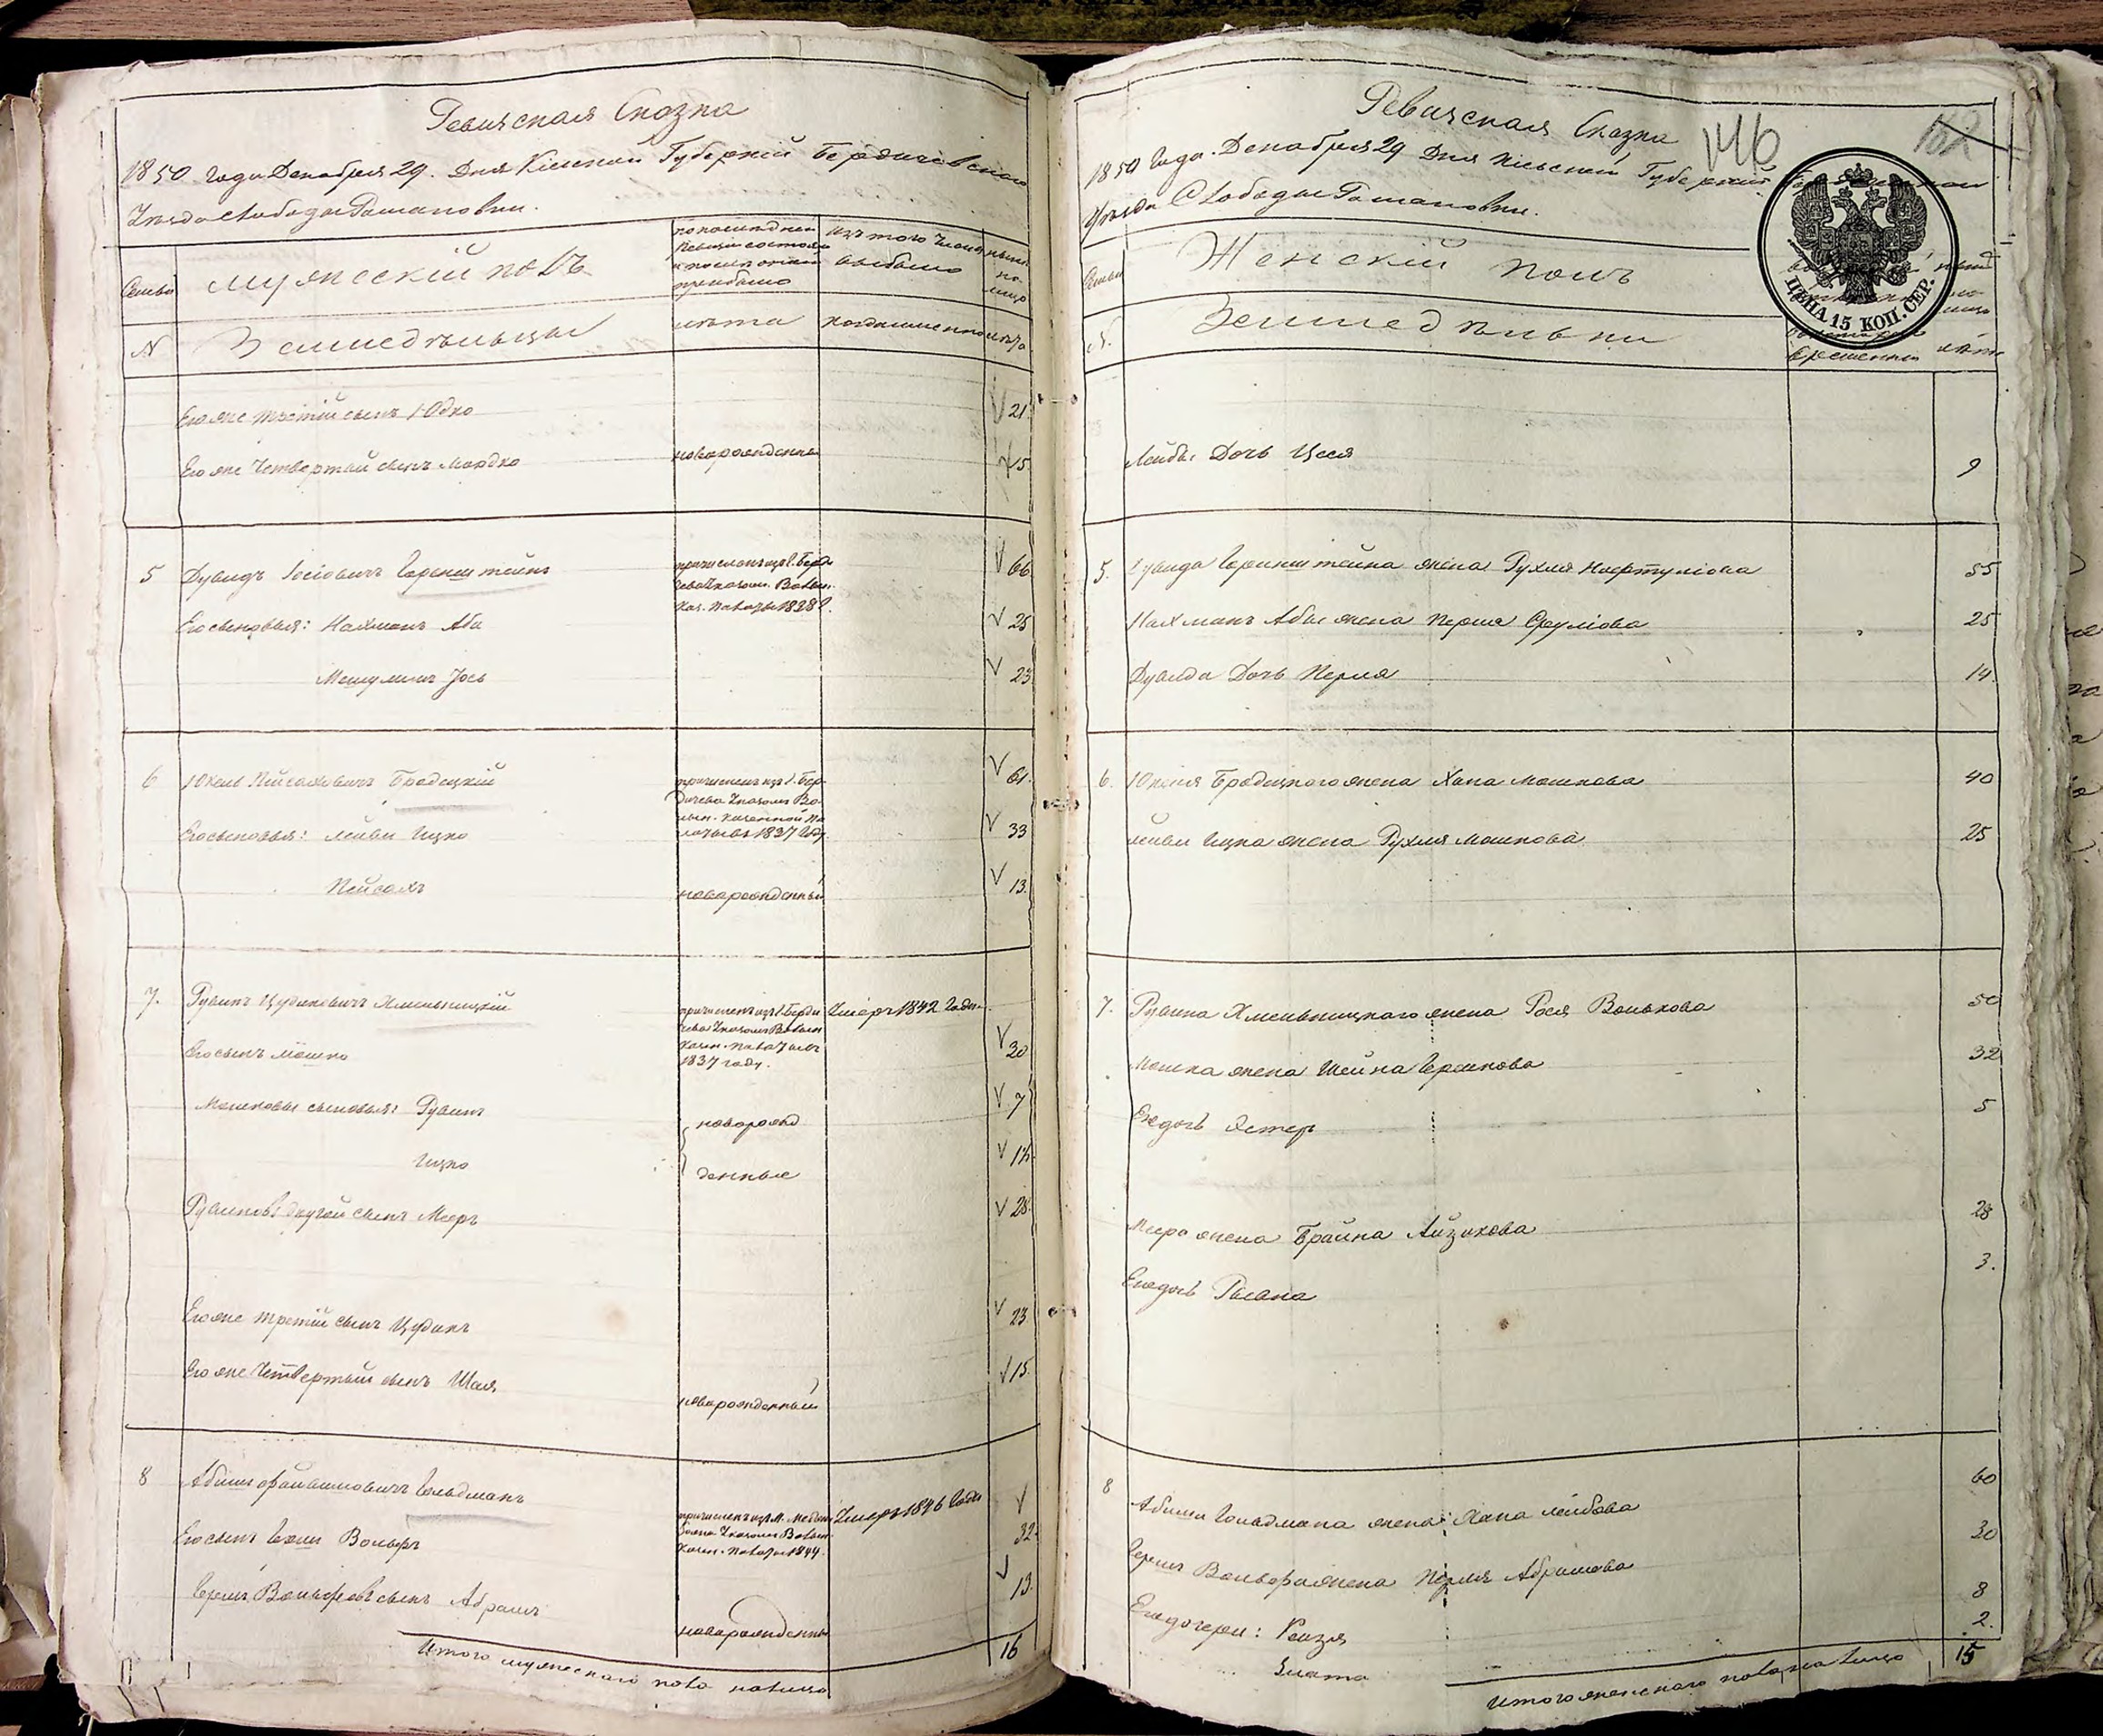 Ревизская Сказка
1850 года Декабря 29. Дня Кіевской Губерніи Бердичевскаго
Уезда Слободы Романовки.
Семьи
Мужескій полъ
по последней
Ревизіи состояло
и после оной
прибыло
Изъ того числа
выбыло
ныне
на
лицо
№
Земледельцы
лета
когда именно
лета
Его же третій сынъ Юдко
21
Его же Четвертый сынъ Мордко
новорожденный
5
5
Дувидъ Іосіовичъ Геренштейнъ
причисленъ изъ г. Берди
чева Указомъ Волын.
Каз. Палаты 1838 г.
66
Его сыновья: Нахманъ Аба
25
Мешулимъ Іось
23
6
Юкель Пейсаховичъ Бродецкій
причисленъ изъ г. Бер
дичева Указомъ Во
лын. Казенной Па
латы въ 1837 году
61.
Его сыновья: Лейви Ицко
33
Пейсахъ
новорожденный
13.
7.
Рувинъ Цудиковичъ Хмельницкій
причисленъ изъ г. Берди
чева Указомъ Волын
Казен. Палаты въ
1837 году.
Умеръ 1842 года
Его сынъ Мошко
30
Мошковы сыновья: Рувинъ
новорож
7
Ицко
денные
1½
Рувиновъ другой сынъ Мееръ
28.
Его же третій сынъ Цудикъ
23
Его же Четвертый сынъ Шая
новорожденный
15.
8
Абишъ Файвишовичъ Гольдманъ
причисленъ изъ М.
Указомъ Волын
Казен. Палаты 1844.
Умеръ 1846 года
Его сынъ Гершъ Вольфъ
32
Гершъ Вольфовъ сынъ Абрамъ
новорожденный
13.
Итого мужескаго пола налицо
16
Ревизская Сказка
146
1850 года Декабря 29 Дня Кіевской Губерніи
Уезда Слободы Романовки.
ЦѢНА 15 КОП. СЕР.
Семьи
Женскій полъ
№.
Земледелки
времянной
лета
Лейбы Дочь Цеся
9
5.
Дувида Геринштейна жена Рухля
55
Нахманъ Абы жена Перля Сруліова
25
Дувида Дочь Перля
14.
6.
Юкеля Бродецкого жена Хана Мошкова
40
Лейви Ицка жена Рухля Мошкова
25
7.
Рувина Хмельницкаго жена Рося Волькова
50
Мошка жена Шейна Гершкова
32
Ея дочь Эстер
5
Меера жена Брайна Айзикова
28
Ея дочь
3.
8
Абиша Гольдмана жена Хана Лейбова
60
Гершъ Вольфа жена Перля Абрамова
30
Ея дочери: Рейзя
8
Злата
2.
Итого женскаго пола на лицо
15